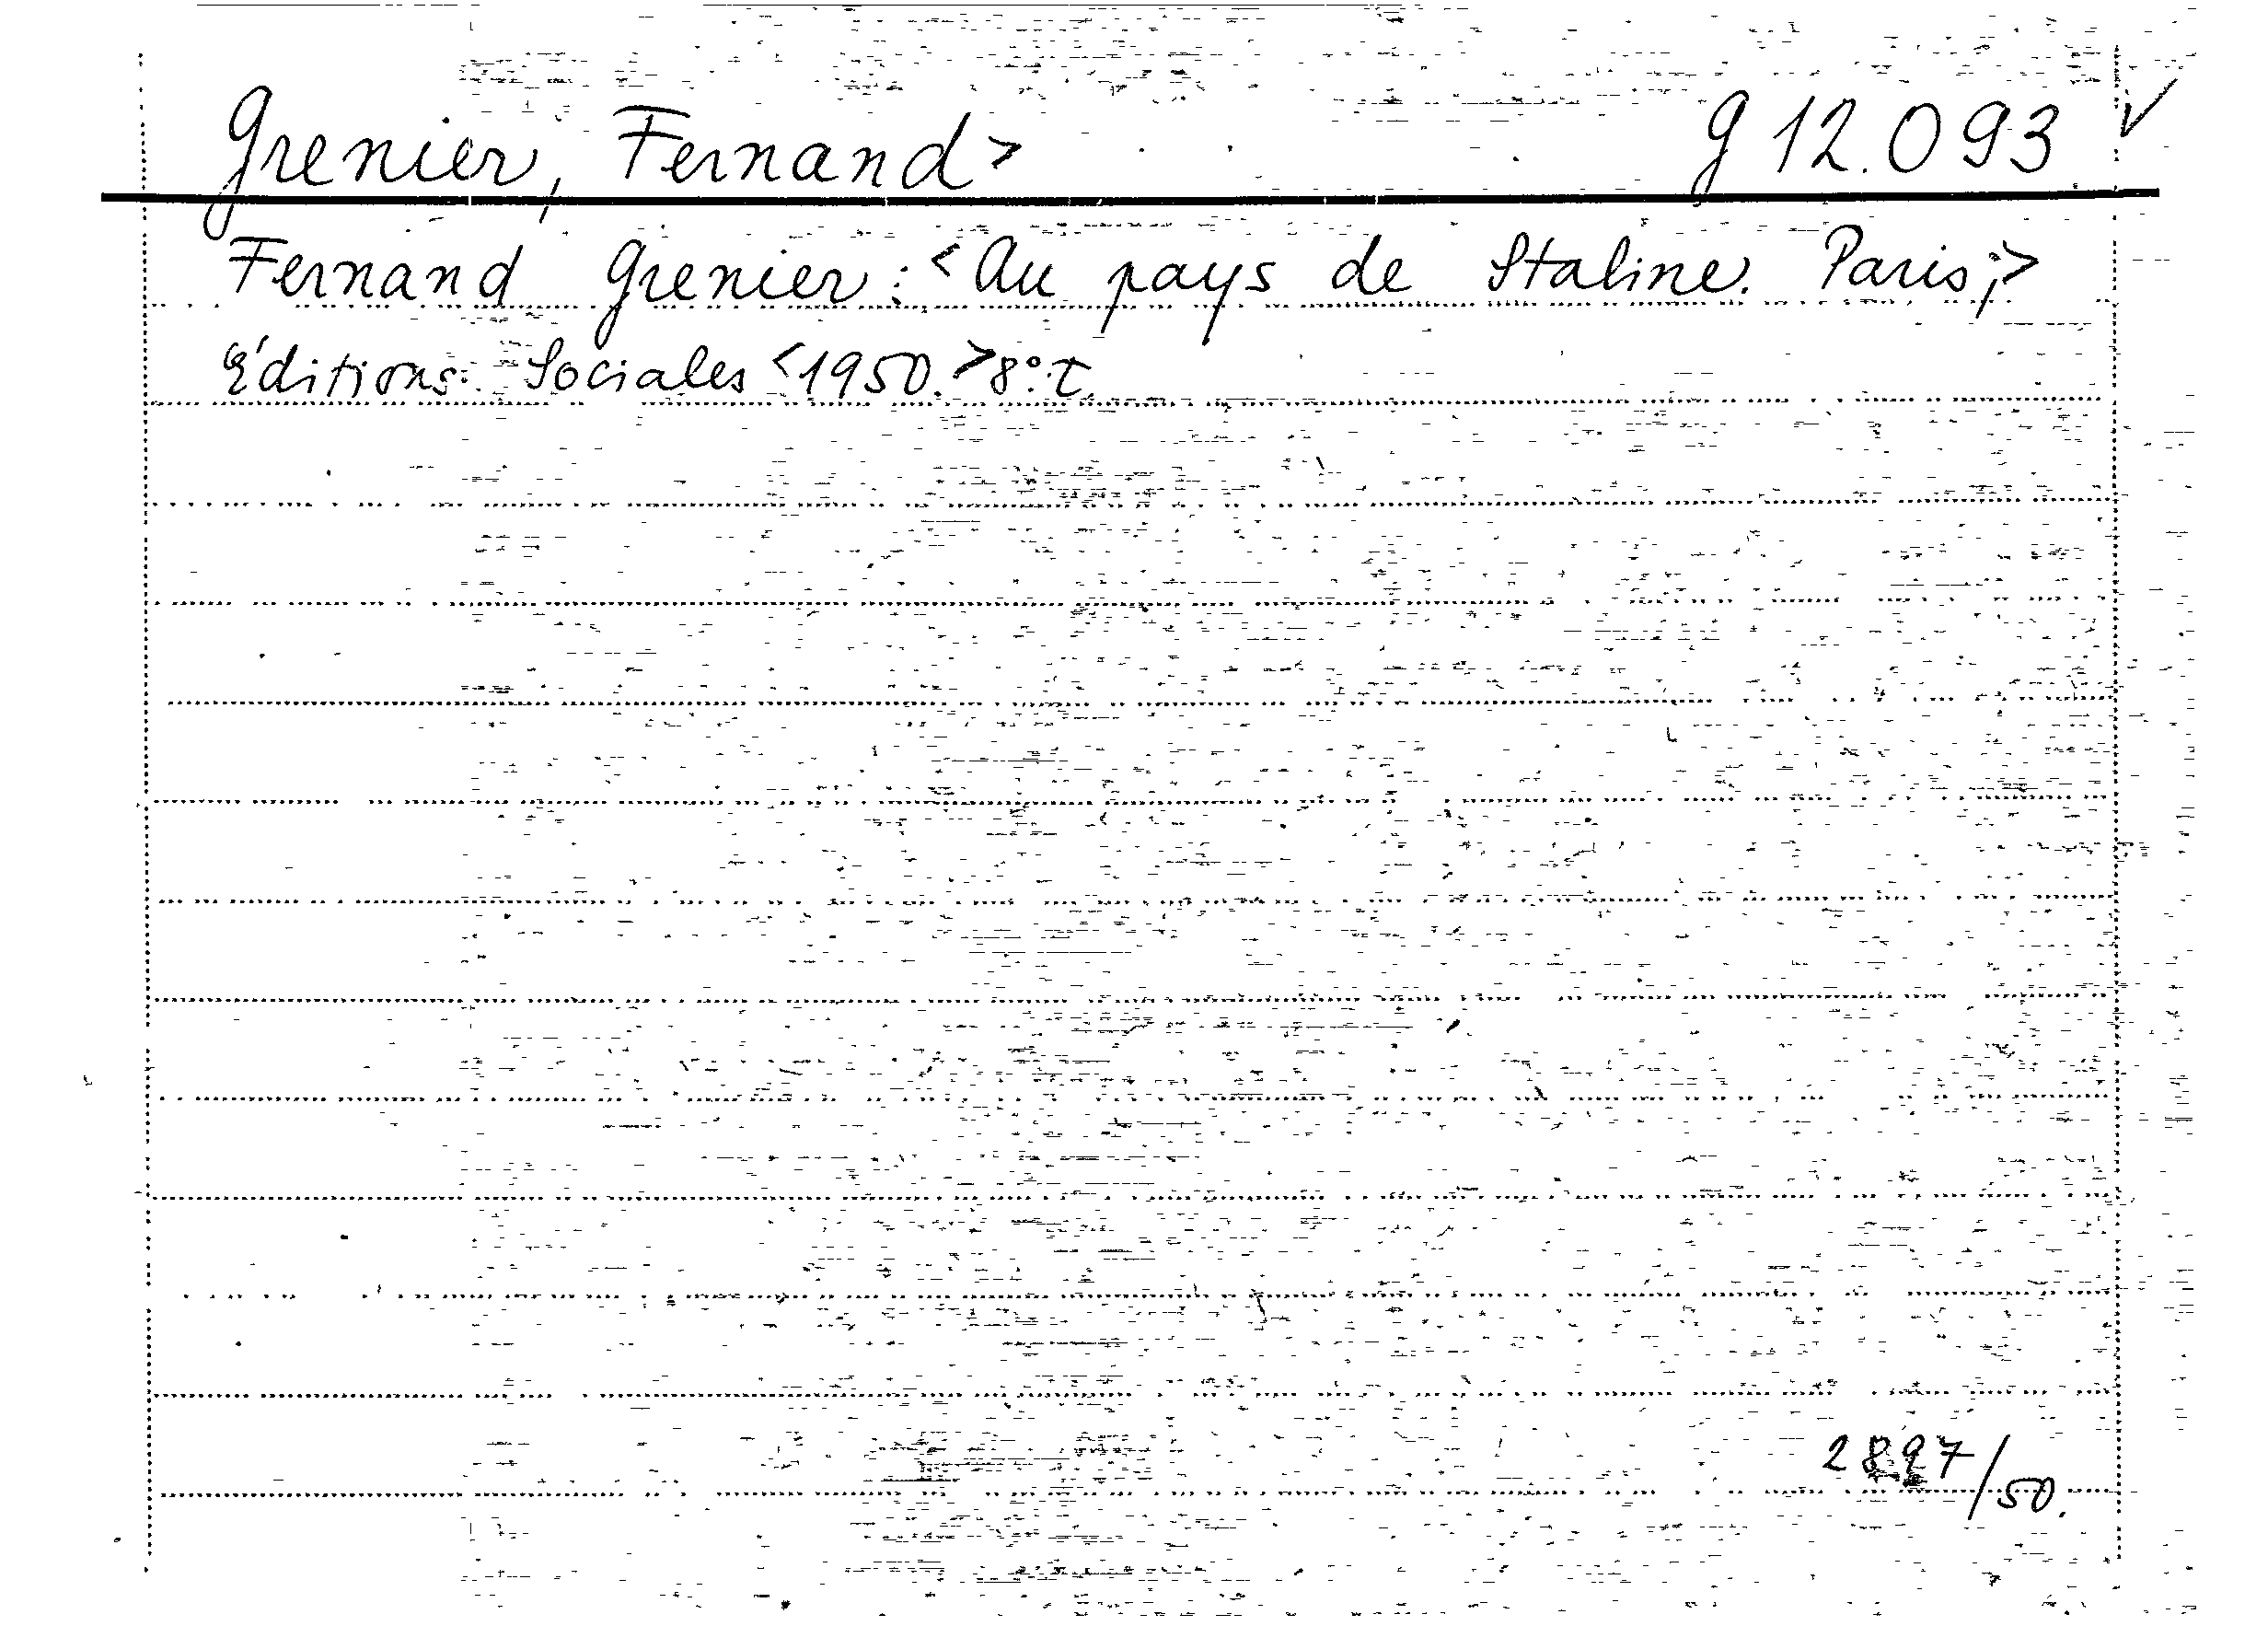 Grenier, Fernand> g 12.093 ✓
Fernand Grenier: <Au pays de Staline. Paris;>
Éditions Sociales <1950.> 8°.
2897/50.